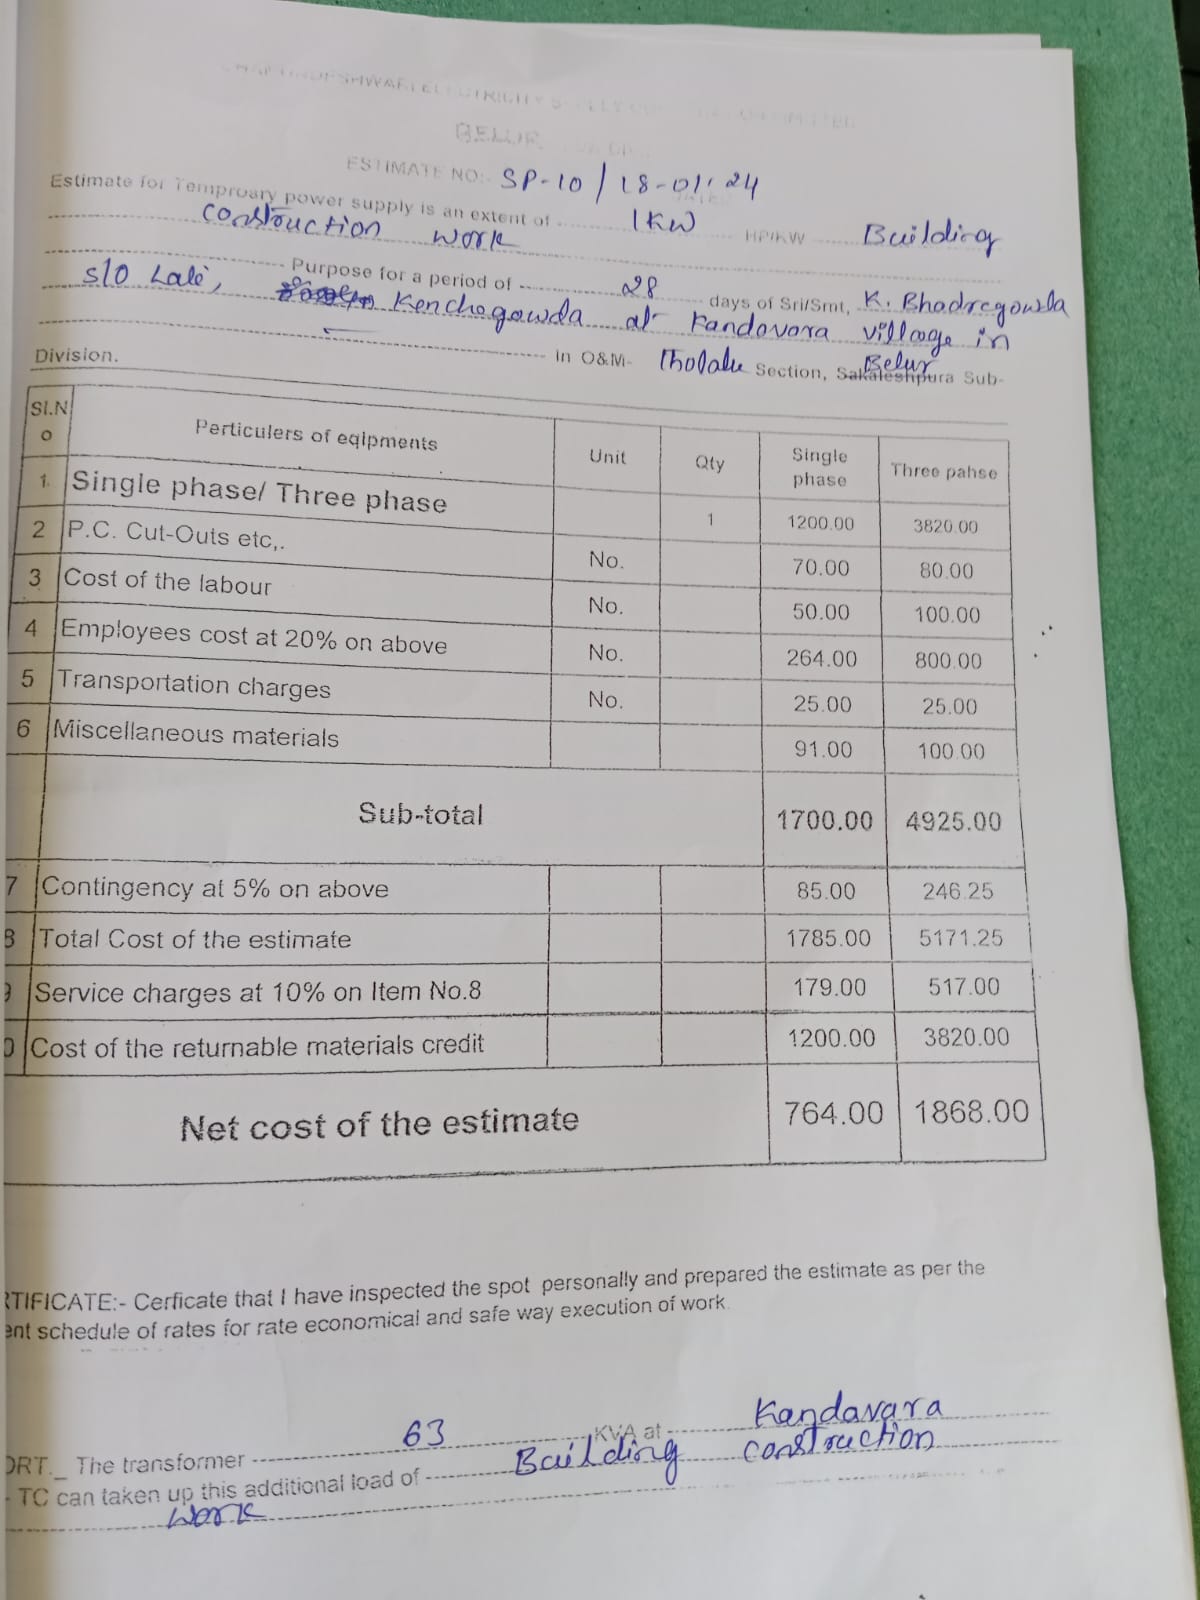 ELECTRICITY
BELUR
ESTIMATE NO:- SP-10/18-01-24
Estimate for Temproary power supply is an extent of 1KW HP/KW Building
Construction work
Purpose for a period of 28 days of Sri/Smt, K. Bhadregowda
s/o Late, Kenchegowda at Kandavara village in
in O&M- Section, Sakaleshpura Belur Sub-
Division.
Sl.No Perticulers of eqipments Unit Qty Single phase Three pahse
1. Single phase/ Three phase 1 1200.00 3820.00
2 P.C. Cut-Outs etc,. No. 70.00 80.00
3 Cost of the labour No. 50.00 100.00
4 Employees cost at 20% on above No. 264.00 800.00
5 Transportation charges No. 25.00 25.00
6 Miscellaneous materials 91.00 100.00
Sub-total 1700.00 4925.00
7 Contingency at 5% on above 85.00 246.25
8 Total Cost of the estimate 1785.00 5171.25
9 Service charges at 10% on Item No.8 179.00 517.00
0 Cost of the returnable materials credit 1200.00 3820.00
Net cost of the estimate 764.00 1868.00
RTIFICATE:- Cerficate that I have inspected the spot personally and prepared the estimate as per the
ent schedule of rates for rate economical and safe way execution of work.
ORT._ The transformer 63 KVA at Kandavara
- TC can taken up this additional load of Building Construction
work